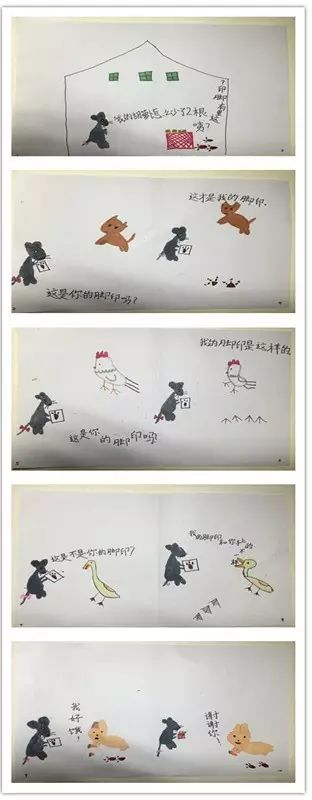 我的萝卜怎么少了2根
这里有脚印?
这是你的脚印吗?
这才是我的脚印.
这是你的脚印吗
我的脚印是这样的
这是不是你的脚印?
我的脚印和你
上的
不一样
我好饿!
谢谢你!